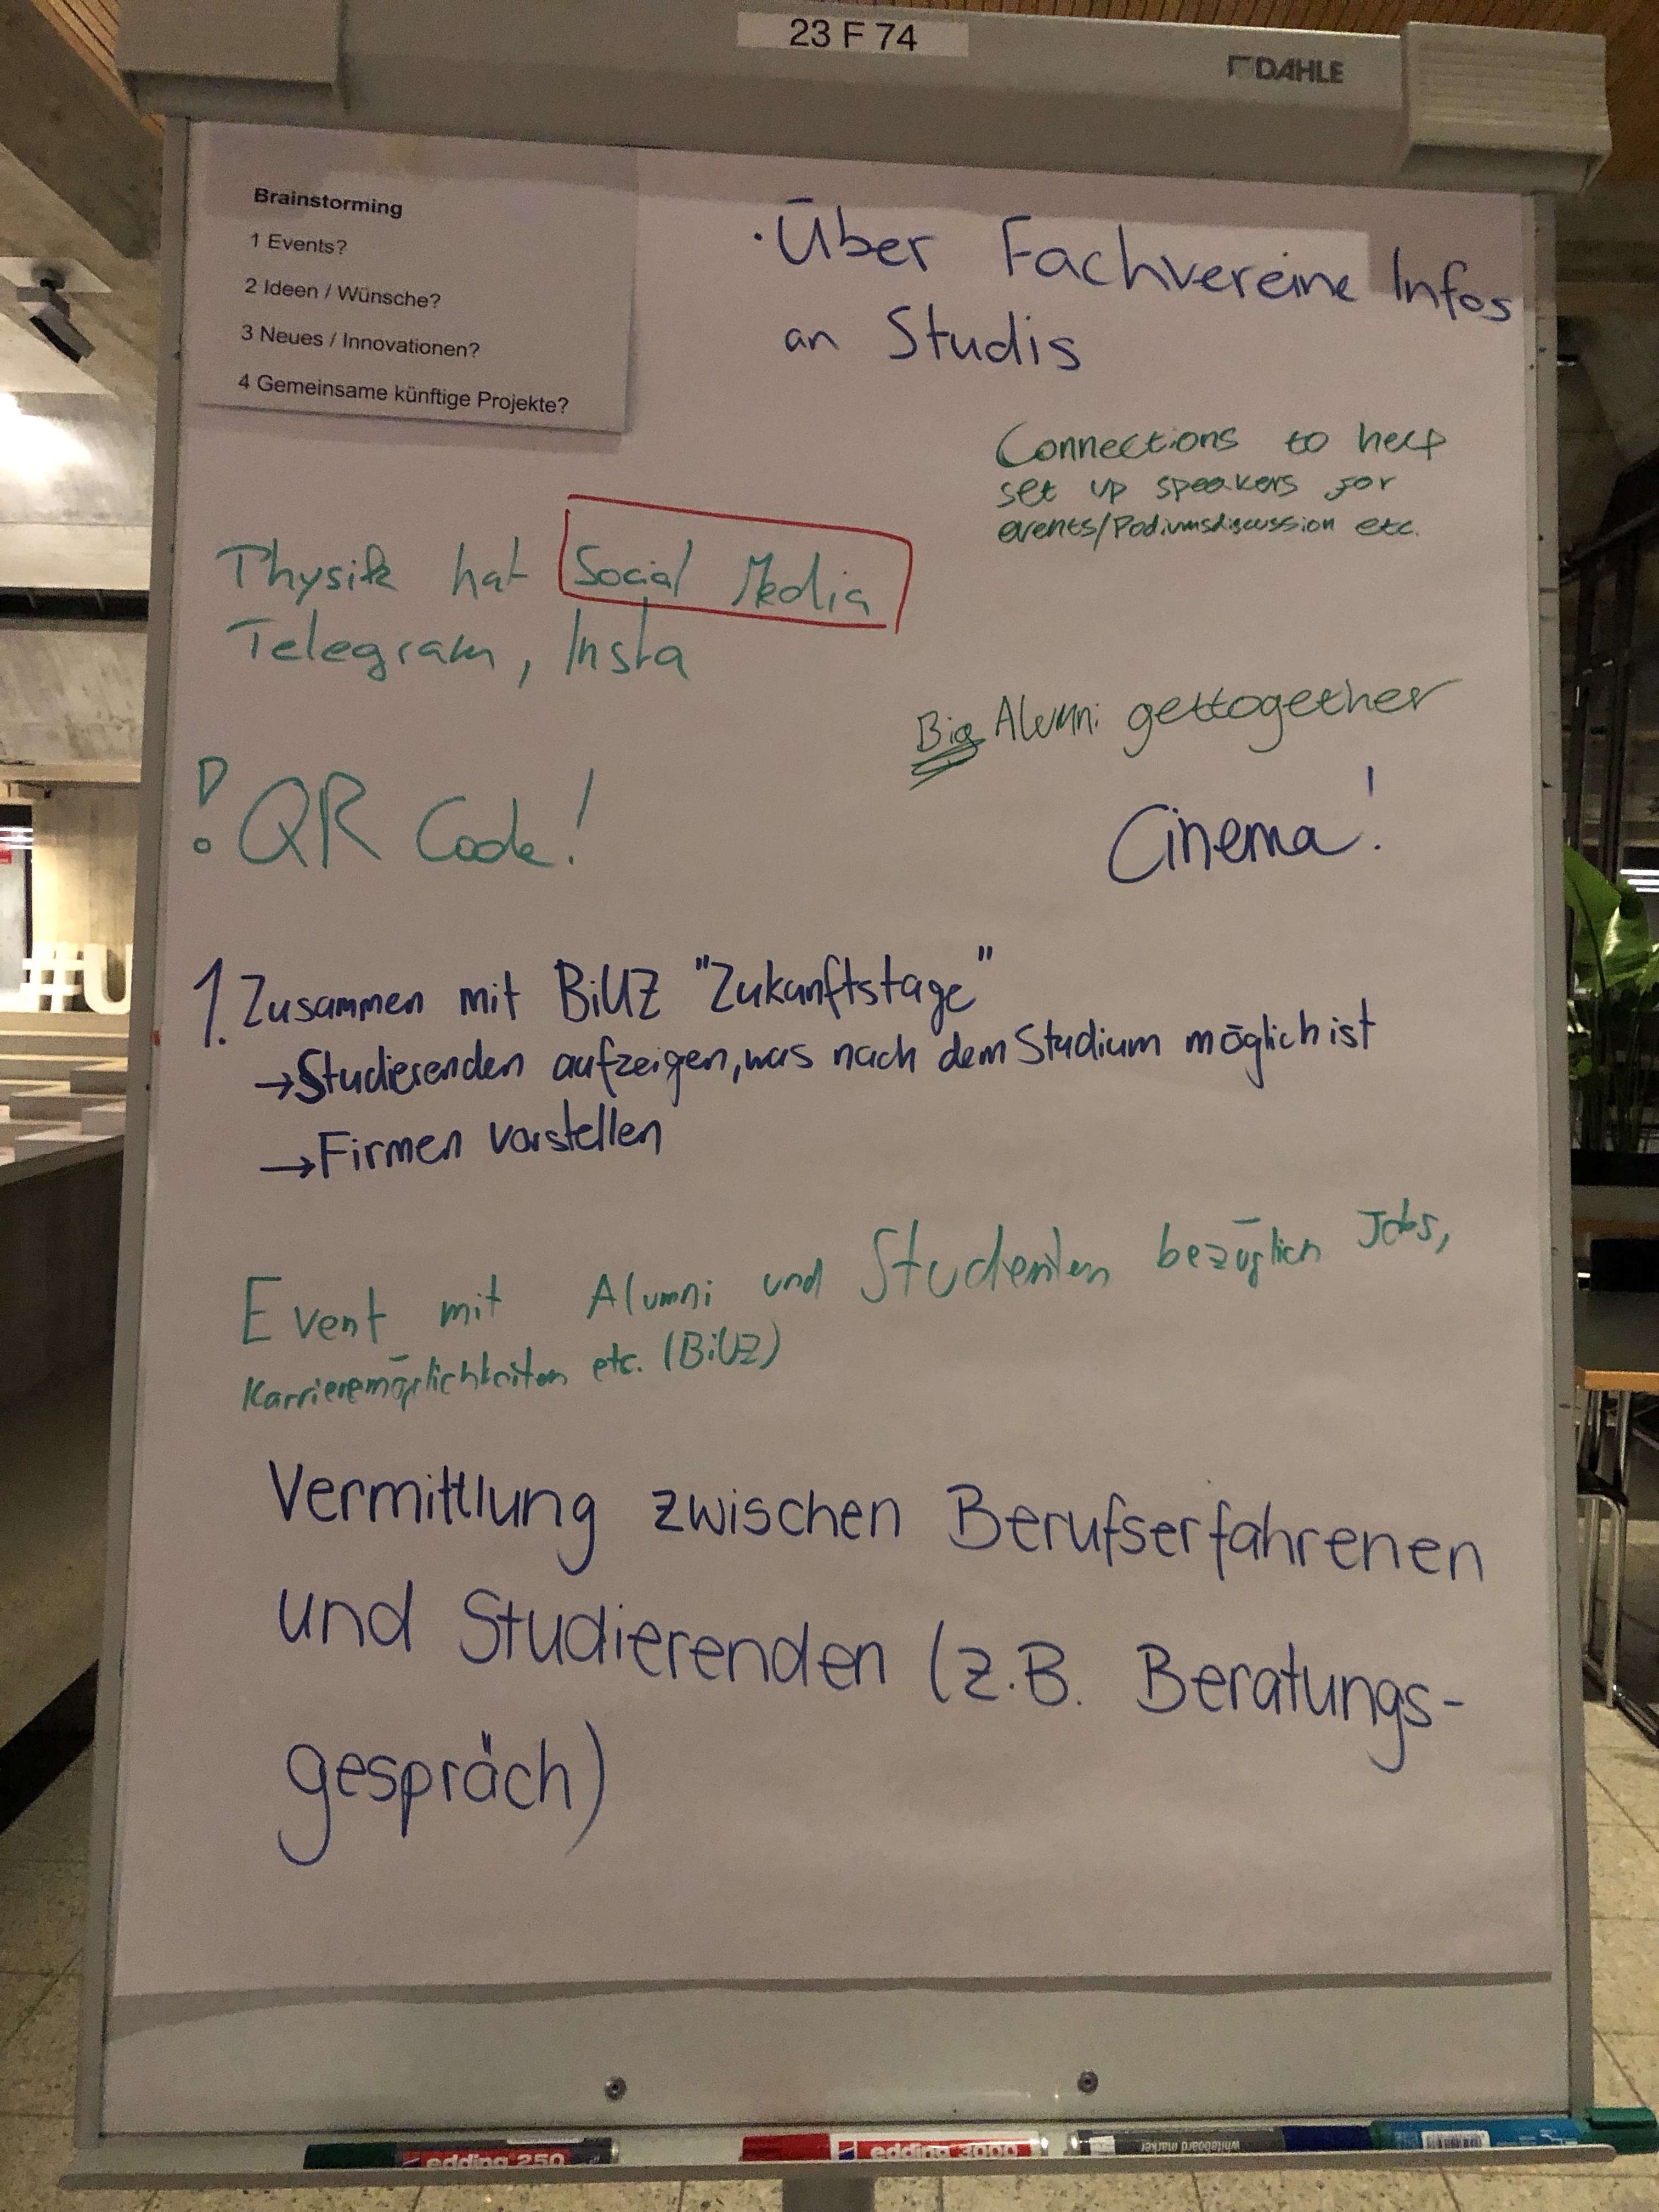 23 F 74
DAHLE
Brainstorming
1 Events?
2 Ideen / Wünsche?
3 Neues / Innovationen?
4 Gemeinsame künftige Projekte?
· Über Fachvereine Infos
an Studis
Connections to help
set up speakers for
events/Podiumsdiscussion etc.
Physik hat Social Media
Telegram, Insta
Big Alumni gettogether
! QR Code!
Cinema!
1. Zusammen mit BiUZ "Zukunftstage"
→ Studierenden aufzeigen, was nach dem Studium möglich ist
→ Firmen vorstellen
Event mit Alumni und Studenten bezüglich Jobs,
Karrieremöglichkeiten etc. (BiUZ)
Vermittlung zwischen Berufserfahrenen
und Studierenden (z.B. Beratungs-
gespräch)
#U
edding 250
edding 3000
whiteboard marker